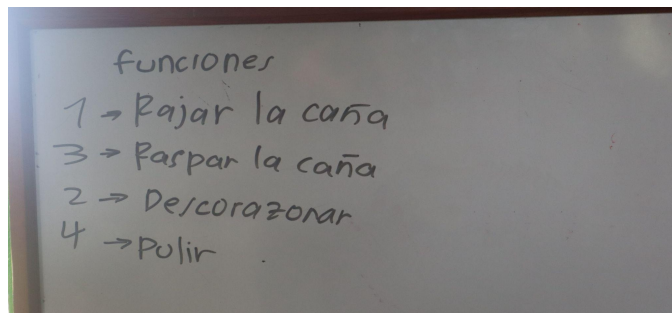 funciones
1 → Rajar la caña
3 → Raspar la caña
2 → Descorazonar
4 → Pulir